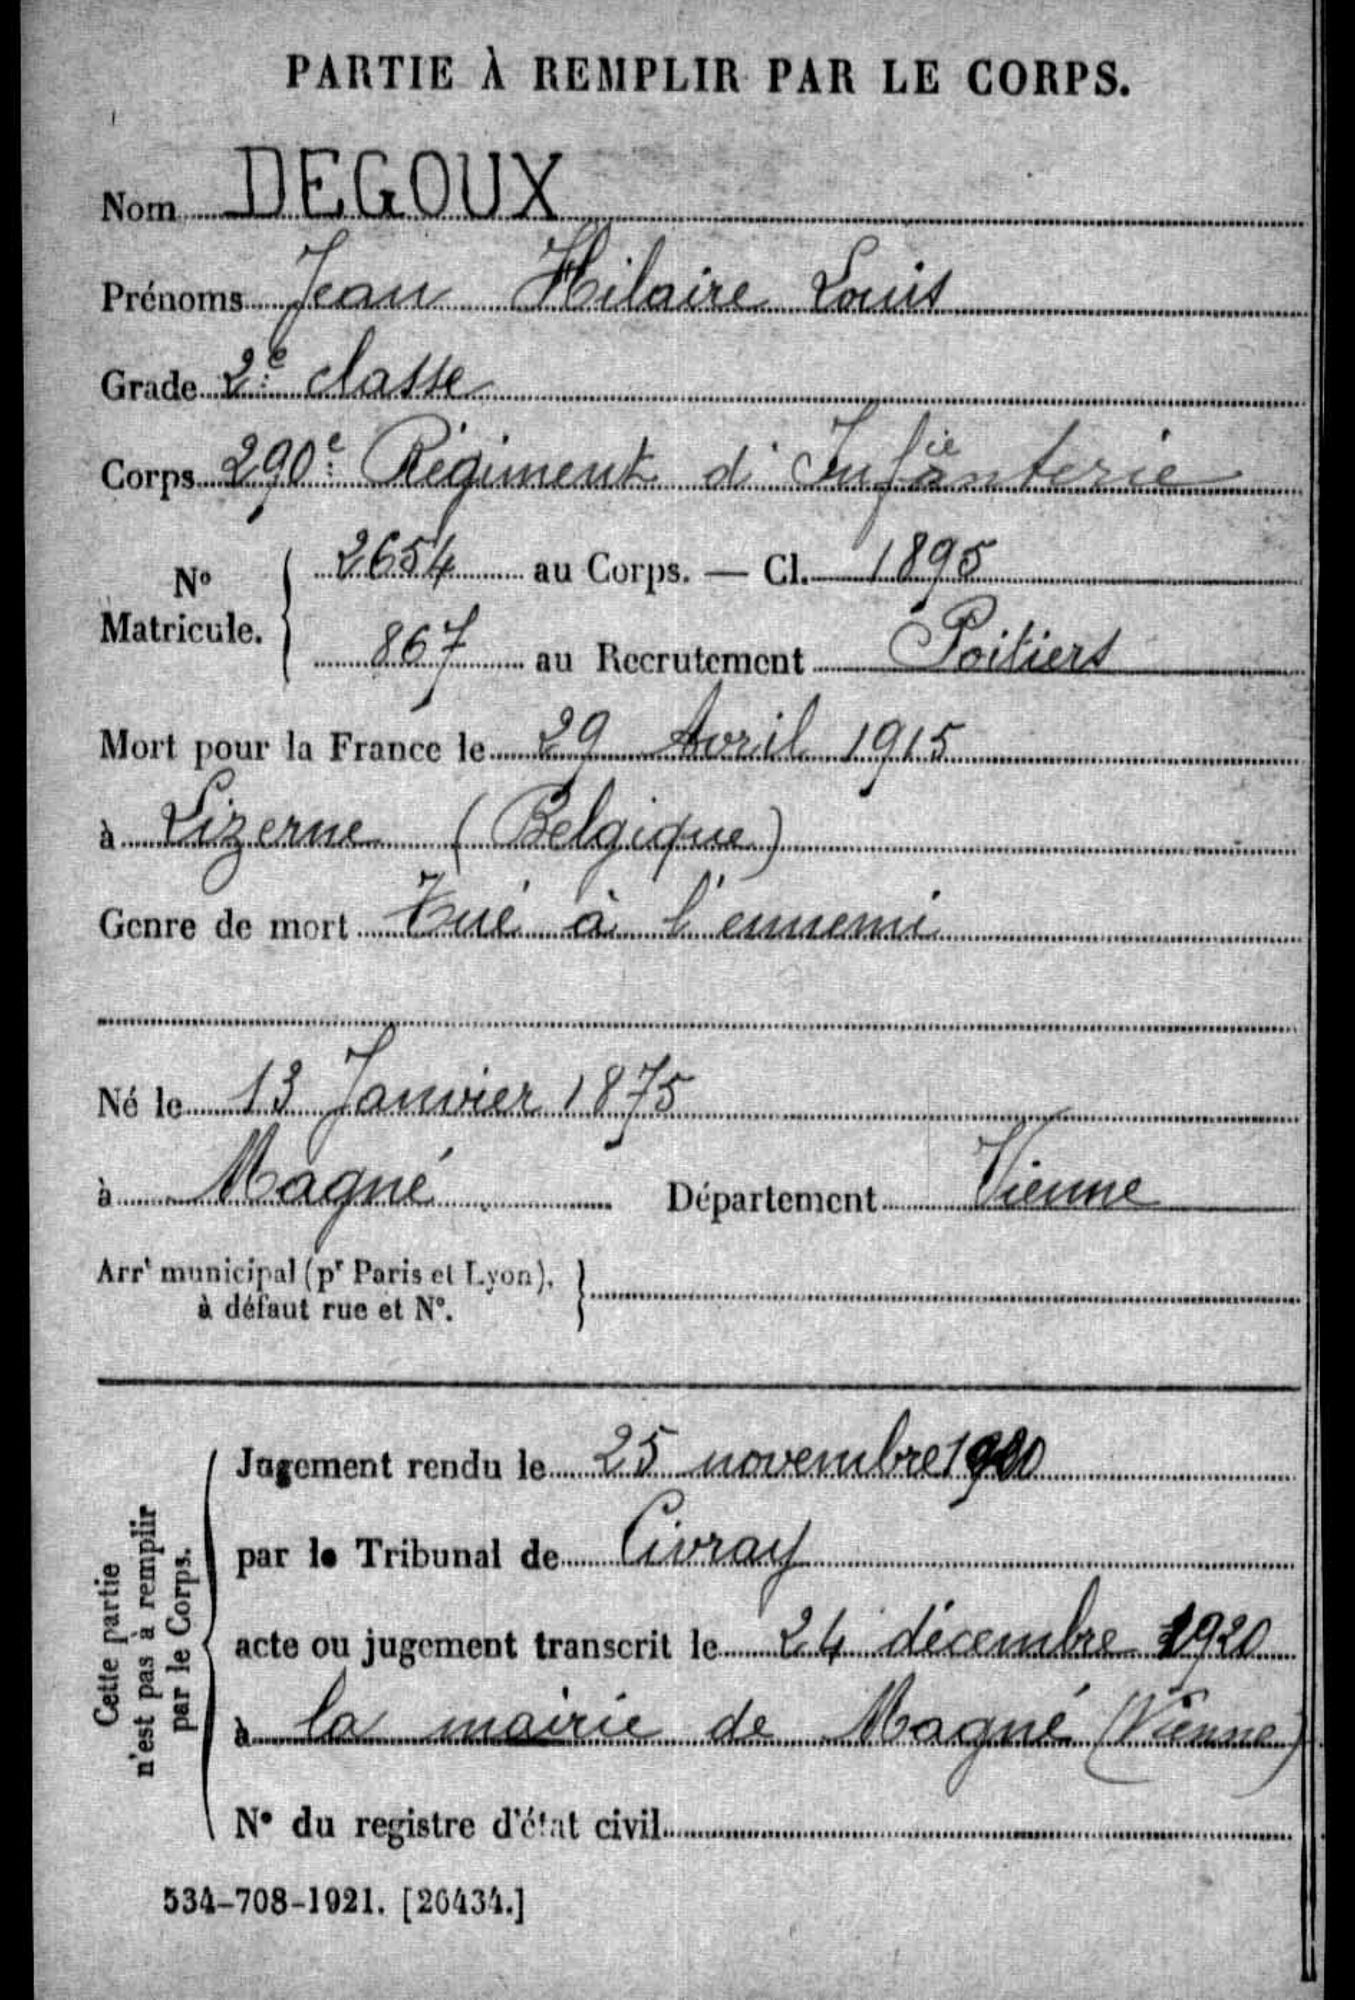 PARTIE À REMPLIR PAR LE CORPS.
Nom DEGOUX
Prénoms Jean Hilaire Louis
Grade 2e classe
Corps 290e Régiment d'Infanterie
N° Matricule. 2654 au Corps. — Cl. 1895
867 au Recrutement Poitiers
Mort pour la France le 29 Avril 1915
à Lizerne (Belgique)
Genre de mort Tué à l'ennemi
Né le 13 Janvier 1875
à Magné Département Vienne
Arrt municipal (pr Paris et Lyon),
à défaut rue et N°.
Cette partie
n'est pas à remplir
par le Corps.
Jugement rendu le 25 novembre 1920
par le Tribunal de Civray
acte ou jugement transcrit le 24 décembre 1920
à la mairie de Magné (Vienne)
N° du registre d'état civil
534-708-1921. [26434.]